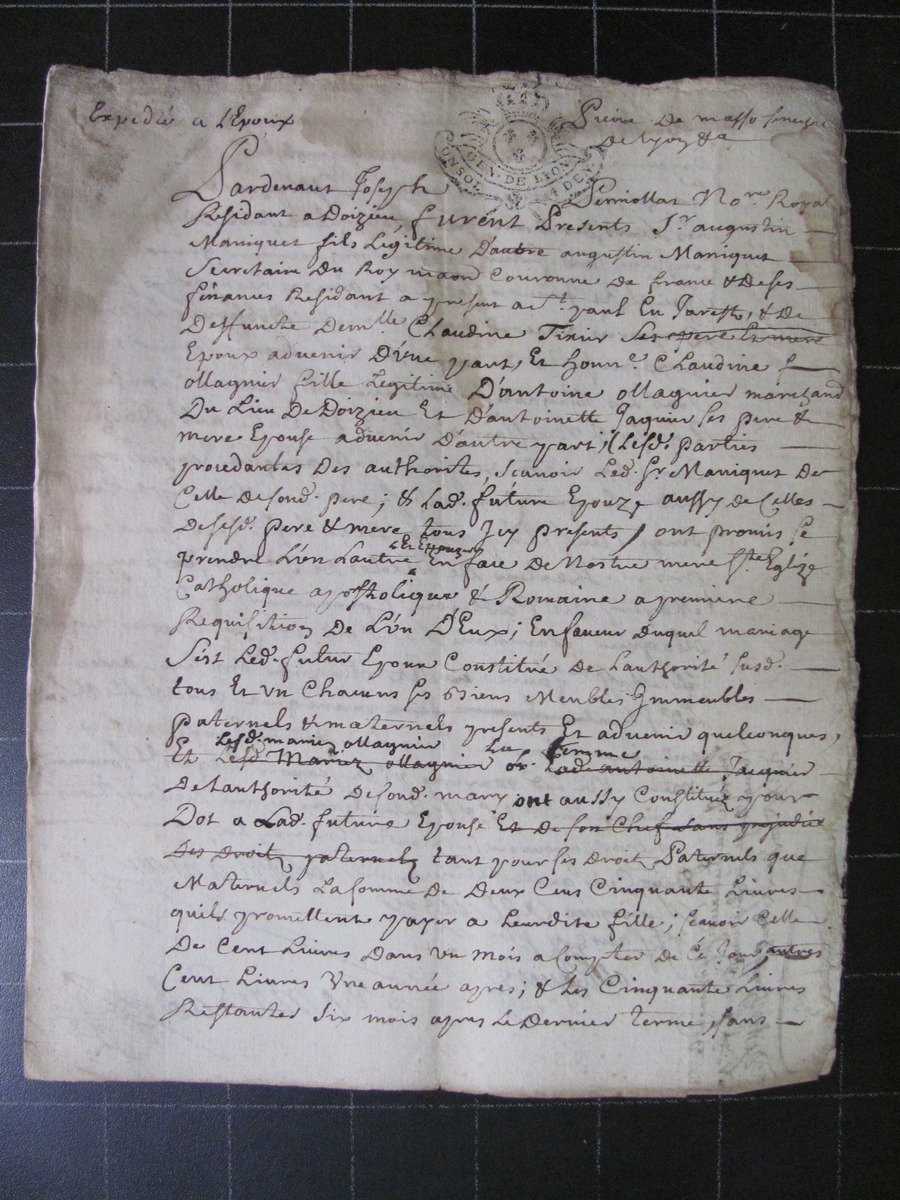 Expedié a l'Epoux
De Lyon &a
GEN. DE LION
Pardevant Joseph Perriollat No.re Royal
Residant a Doizieu, furent Presents Sr. augustin
Maniquet fils Legitime D'autre augustin Maniquet
Secretaire Du Roy maon Couronne De france & De ses
finances Residant a present a St. paul En Jarestz, & De
Deffuncte Dem.lle Claudine Tixier Ses pere Et mere
Epoux advenir D'Vne part, Et honn.e Claudine
ollagnier fille Legitime D'antoine ollagnier marchand
Du Lieu De Doizieu Et D'antoinette Jaquier ses pere &
mere Epouse advenir D'autre part; Lesd. parties
procedantes Des authorites, scavoir Led. Sr. Maniquet De
Celle De sond. pere; & Lad. future Epouze aussy de Celles
De sesd. pere & mere tous Icy presents, ont promis se
Et Epouzer
prendre L'un L'autre En face De Nostre mere Ste. Eglize
Catholique apostholique & Romaine a premiere
Requisition De L'un D'Eux; En faveur duquel mariage
S'est Led. futur Epoux Constitué De L'authorité susd.
tous Et un Chacuns ses Biens Meubles Immeubles
paternels & maternels presents Et advenir quelconques,
Lesd. mariez ollagnier femme
Et Lesd. Mariez ollagnier Lad. antoinette Jacquier
De L'authorité De sond. mary ont aussy Constitué pour
Dot a Lad. future Epouse Et De son Chef sans prejudice
Des Droitz paternelz tant pour ses Droitz Paternels que
Maternels La somme De Deux Cens Cinquante Livres
quils promettent payer a Leurdite fille; scavoir Celle
De Cent Livres Dans un mois a Compter de Ce Jour, autres
Cent Livres Une année apres; & Les Cinquante Livres
Restantes six mois apres Le Dernier terme, sans